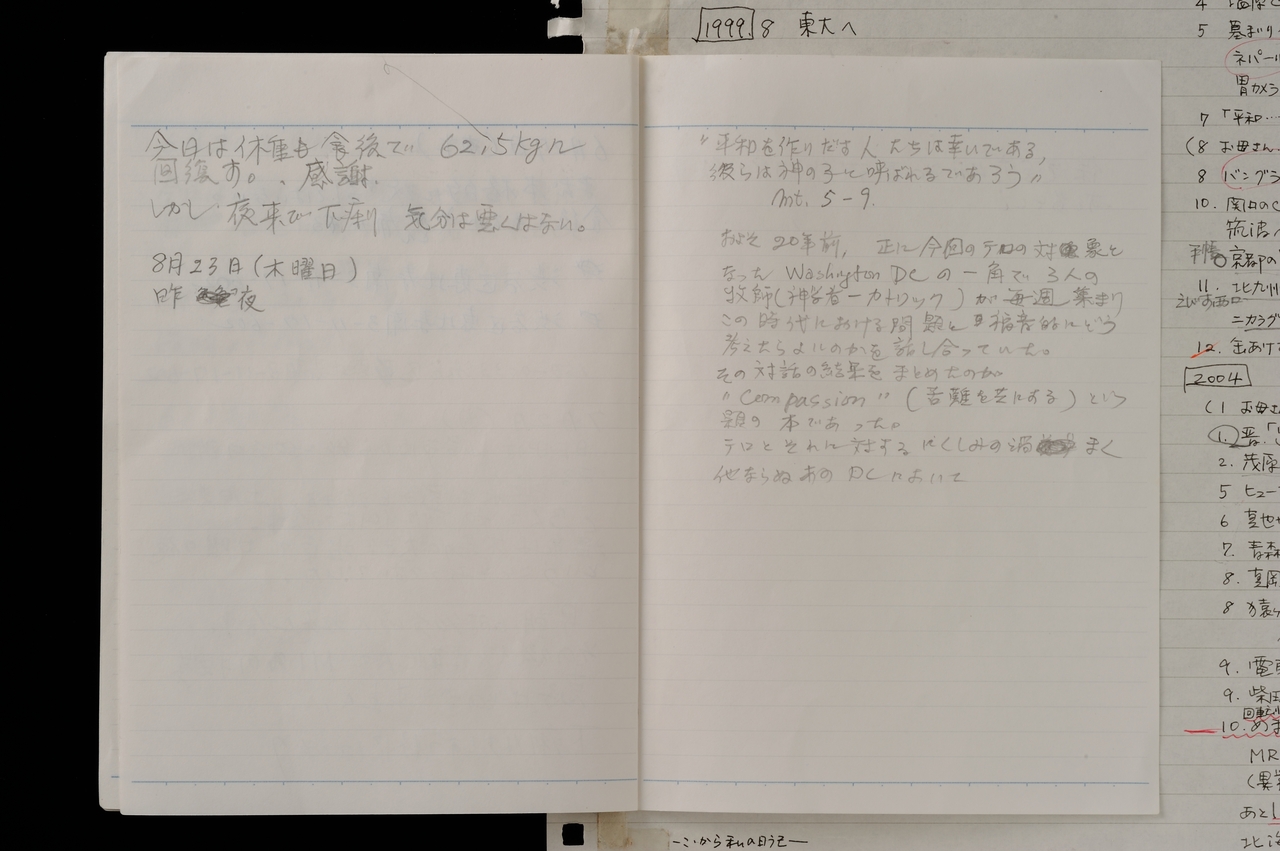 1999. 8 東大へ
今日は体重も食後で 62.5kgに
回復す。、感謝.
しかし 夜来で下痢 気分は悪くはない。
8月23日(木曜日)
昨 夜
"平和を作りだす人たちは幸いである,
彼らは神の子と呼ばれるであろう"
Mt. 5-9.
およそ 20年前, 正に今回のテロの対象と
なった Washington DCの一角で 3人の
牧師(神学者ーカトリック)が毎週 集まり
この時代における問題を 的にどう
考えたらよいのかを話し合っていた。
その対話の結果を まとめたのが
"Compassion" (苦難を共にする) という
題の 本であった。
テロとそれに対する にくしみの渦 まく
他ならぬあの DCにおいて
4
5 墓まいり
ネパール
胃カメラ
7 「平和…
(8 お母さん
8 バングラ
10.
筑波
京都の
11. 北九州
ニカラグ
12. 缶あけ
2004
(1 お母
1.
2. 茂原
5 ヒュー
6 真也
7. 青森
8. 真岡
8 猿
9. 電
9. 柴田
回転
10. めま
MR
(異
あと
北海